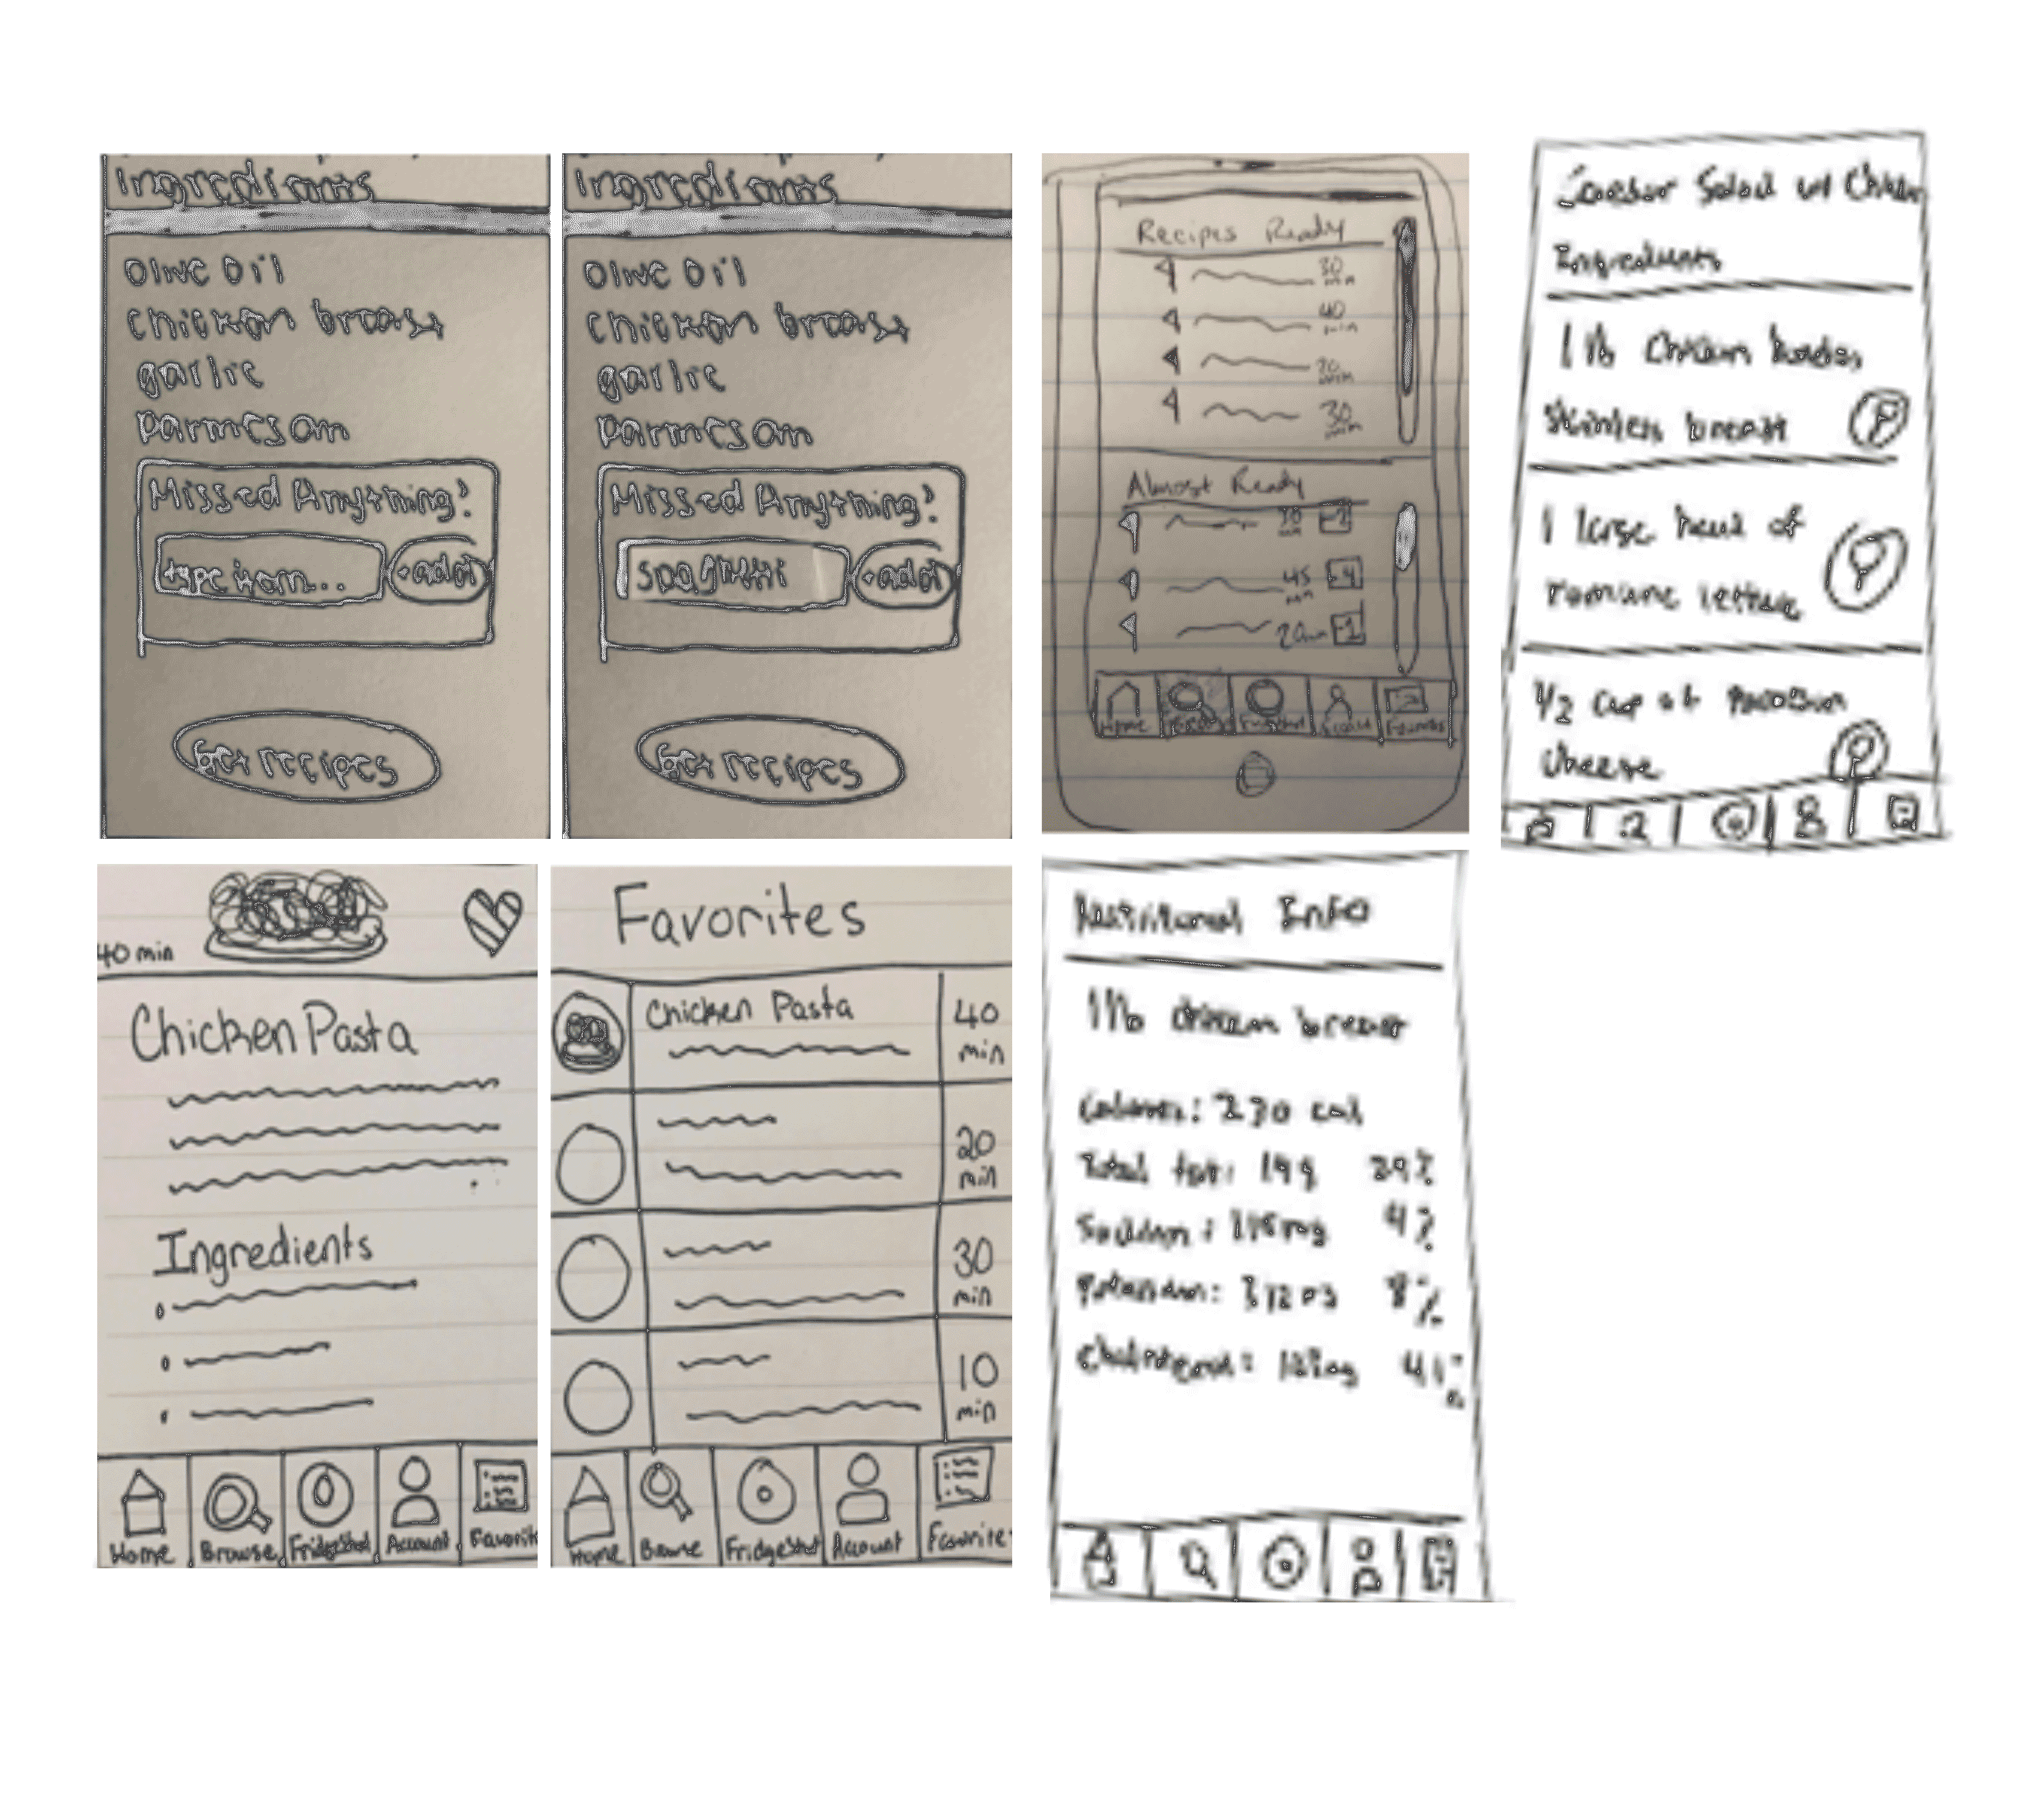 Ingredients
olive oil
chicken breast
garlic
parmesan
Missed Anything?
type item...
+add
Get recipes
Ingredients
olive oil
chicken breast
garlic
parmesan
Missed Anything?
spaghetti
+add
Get recipes
Recipes Ready
30 min
40 min
30 min
Almost Ready
45 min -4
20min -1
Home
Favorites
Salad w/ Chicken
Ingredients
1 lb chicken
skinless breast
1 large head of
romaine lettuce
1/2 cup of
cheese
40 min
Chicken Pasta
Ingredients
Home Browse FridgeShot Account Favorit
Favorites
Chicken Pasta 40 min
20 min
30 min
10 min
Home Browse FridgeShot Account Favorite
Nutritional Info
1 lb chicken breast
Calories: 230 cal
Total fat: 19g 29%
Sodium: 4%
Potassium: 8%
Cholesterol: 41%